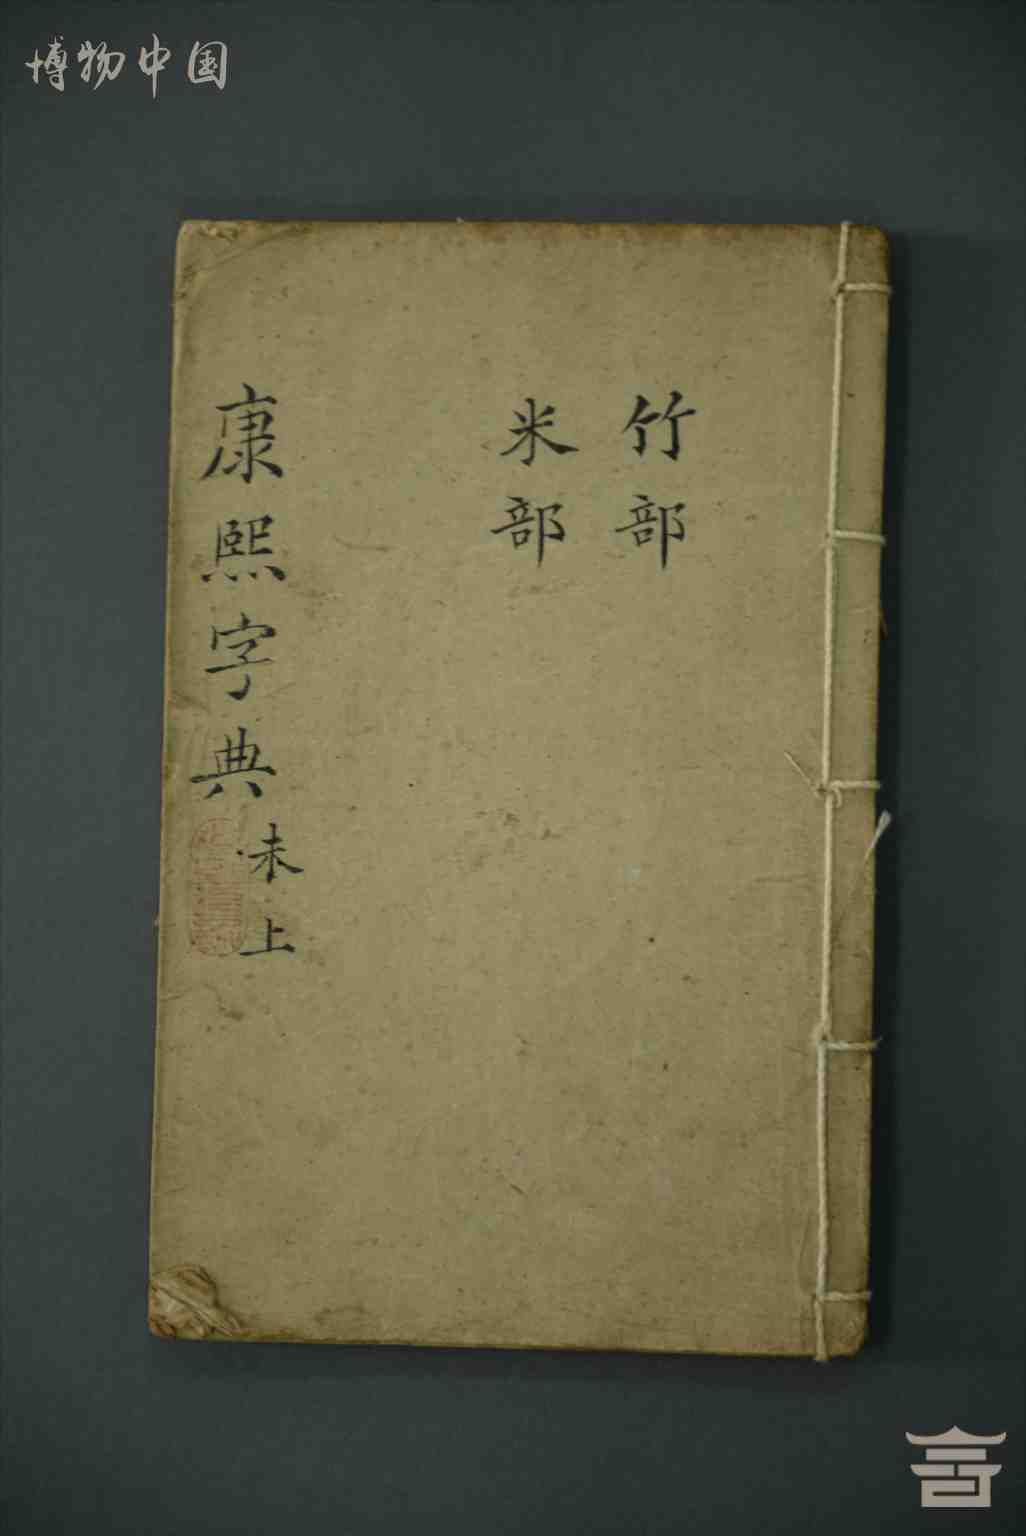 博物中国
竹部
米部
康熙字典
未上